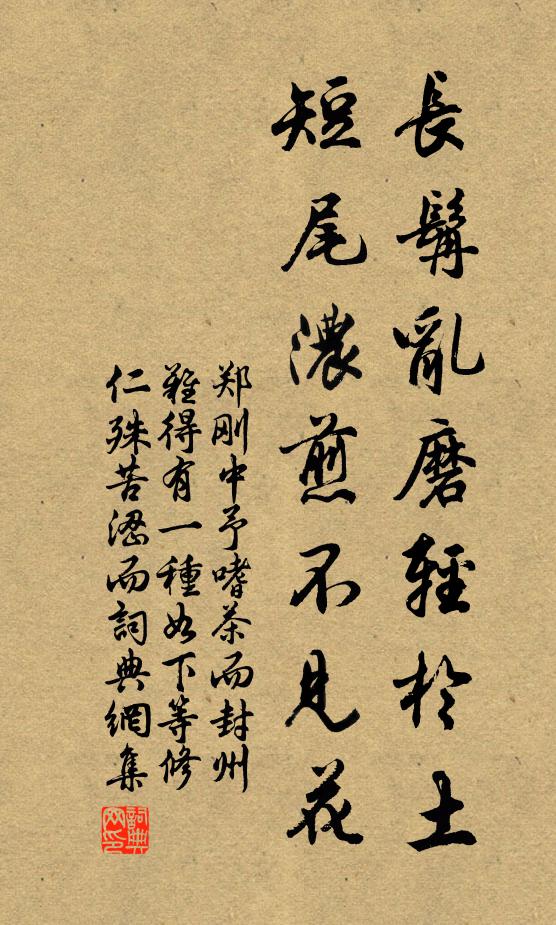 長髯亂磨輕於土
短尾濃煎不見花
郑刚中予嗜茶而封州
難得有一種如下等修
仁殊苦澀而詞典網集
詞典
网印